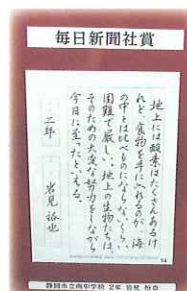 毎日新聞社賞
地上には酸素はたくさんあるけ
れど、食物を手に入れるのが、海
の中とは比べものにならないくらい
困難で厳しい。地上の生物たちは、
そのための大変な努力をしながら
今日に至ったといえる。
二年 岩見 裕也
静岡市立南中学校 2年 岩見 裕也